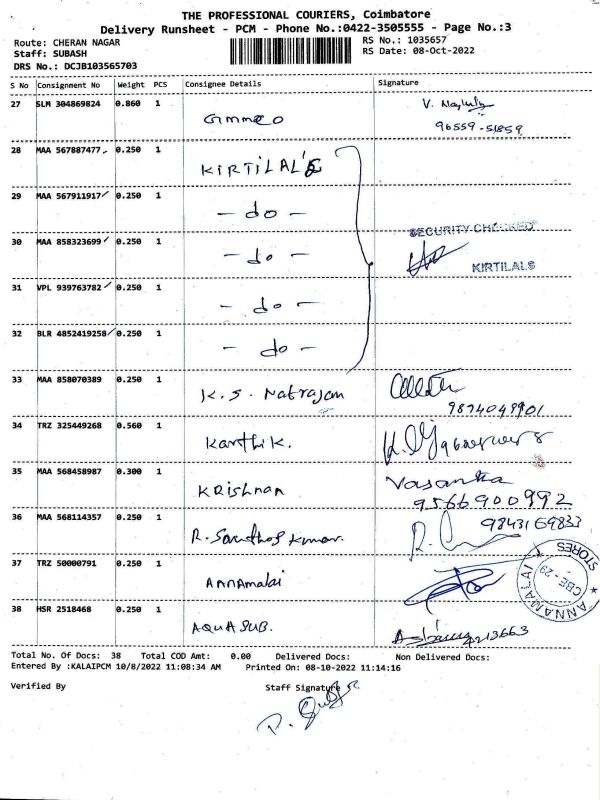 THE PROFESSIONAL COURIERS, Coimbatore
Delivery Runsheet - PCM - Phone No.:0422-3505555 - Page No.:3
Route: CHERAN NAGAR
RS No.: 1035657
Staff: SUBASH
RS Date: 08-Oct-2022
DRS No.: DCJB103565703
S No Consignment No Weight PCS Consignee Details Signature
27 SLM 304869824 0.860 1
96559-51859
28 MAA 567887477 0.250 1 KIRTILAL'S
29 MAA 567911917 0.250 1 - do -
SECURITY CHECKED
30 MAA 858323699 0.250 1 - do -
KIRTILALS
31 VPL 939763782 0.250 1 - do -
32 BLR 4852419258 0.250 1 - do -
33 MAA 858070389 0.250 1 K.S. Natrajan
9874049901
34 TRZ 325449268 0.560 1 Karthik.
35 MAA 568458987 0.300 1 Krishnan Vasantha
9566900992
36 MAA 568114357 0.250 1 R. Santhos kumar. 9843169833
37 TRZ 50000791 0.250 1 Annamalai
ANNAMALAI STORES
CBE - 29
38 HSR 2518468 0.250 1 AQUASUB.
4213663
Total No. Of Docs: 38 Total COD Amt: 0.00 Delivered Docs: Non Delivered Docs:
Entered By :KALAIPCM 10/8/2022 11:08:34 AM Printed On: 08-10-2022 11:14:16
Verified By Staff Signature